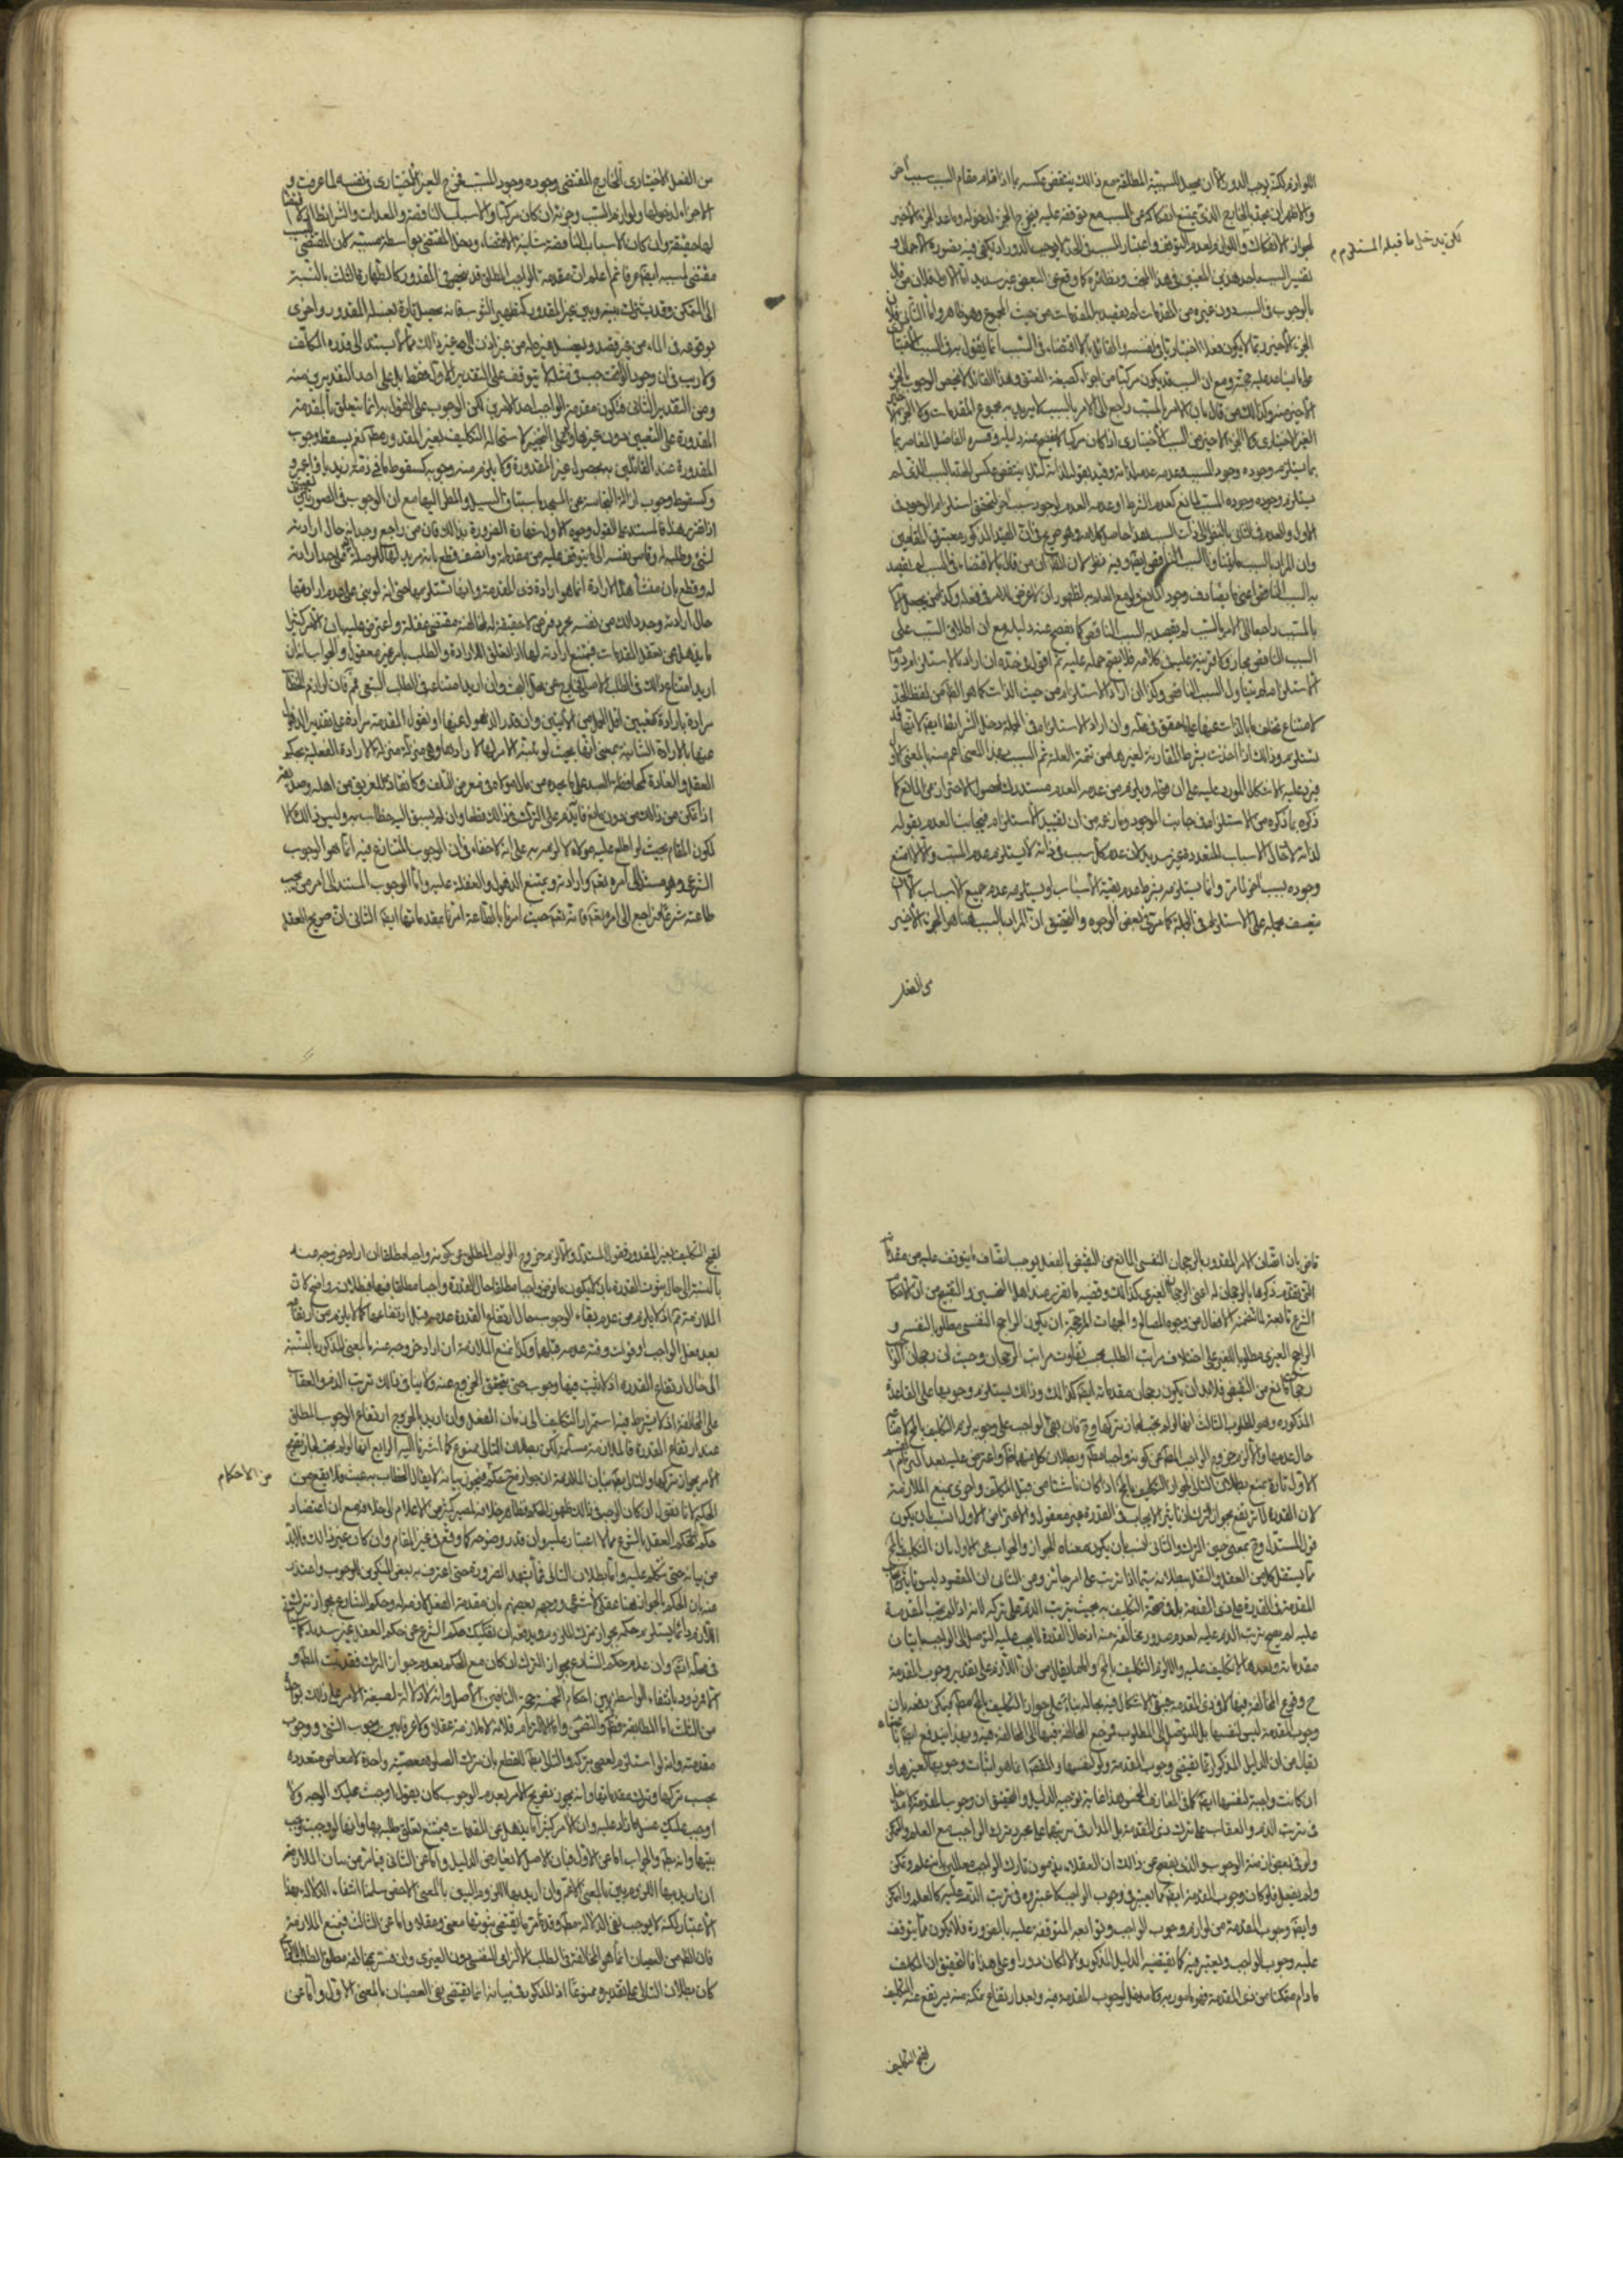 اللوازم لكنه يوجب الدور الا ان يحمل السببية المطلقة مع ذلك ينتقض عكسه بما اذا قام مقام السبب سبب اخر
والاظهر ان يحد بالخارج الذي يمتنع انفكاكه عن المسبب مع توقفه عليه فيخرج الجزء لدخوله وما عد الجزء الاخير
لجواز الانفكاك واللوازم لعدم التوقف واعتبار المسبب في الحد لا يوجب الدور اذ يكفي فيه تصوره الاجمالي و
لكن يدخل ما قبله المستلزم م
تفسير السبب باحد هذين المعنيين في هذا المبحث ونظائره كما وقع عن البعض غير سديد اما الاول فلان من قال
بالوجوب في السبب دون غيره من المقدمات لم يقيده بالمقدمات من حيث المجموع وهو ظاهر واما الثاني فلان
الجزء الاخير ربما لا يكون فعلا اختياريا في نفسه والقائل بالاقتضاء في السبب انما يقول به في السبب
على ما يساعد عليه حجته ومع ان السبب قد يكون مركبا من اجزاء كصيغة العتق وهذا القائل لا يخص الوجوب بالجزء
الاخير منه وكذلك من قال بان الامر بالمسبب راجع الى الامر بالسبب لا يريد به مجموع المقدمات ولا الجزء
الغير الاختياري كما الجزء الاخير من السبب الاختياري اذا كان مركبا كما يفصح عنه دليله وفسره الفاضل المعاصر بما
يستلزم وجوده وجود المسبب وعدمه عدمه لذاته وقيد بقوله لذاته لئلا ينتقض عكس الحد بالسبب الذي لم
يستلزم وجوده وجود المسبب لمانع كعدم الشرط او عدمه العدم لوجود سبب اخر لتحقق استلزام الوجود في
الاول والعدم في الثاني بالنظر الى ذات السبب هذا حاصل كلامه وهو صريح في ان القيد المذكور معتبر في المقامين
وان المراد بالسبب ما يتناول السبب الناقص ايضا وفيه نظر لان الظاهر ان من قال بالاقتضاء في السبب لم يقصد
به السبب الناقص اعني ما يصادف وجود المانع ولو مع العلم به لظهور ان لا غرض للامر في فعله وكذا من يجعل الامر
بالمسبب راجعا الى الامر بالسبب لم يقصد به السبب الناقص كما يفصح عنه دليله مع ان اطلاق السبب على
السبب الناقص مجاز ولا قرينة عليه في كلامه فلا يصح حمله عليه ثم اقول في حده ان اراد الاستلزام
لامتناع تخلف ما بالذات عنها على ما حقق في محله وان اراد الاستلزام في الجملة دخل الشرائط ايضا لانها قد
يستلزم وذلك اذا اخذت بشرط المقارنة لغيرها من تتمة العلة ثم السبب بهذا المعنى اعم منه بالمعنى الاول
فيرد عليه الاشكال المورد عليه على ان قوله ويلزم من عدمه العدم مستدرك لحصول الاحتراز عن المانع كما
ذكره بما ذكره من الاستلزام في جانب الوجود وما زعمه من ان تقييد الاستلزام في جانب العدم بقوله
لذاته لادخال الاسباب المتعددة غير سديد لان عدم كل سبب في ذاته لا يستلزم عدم المسبب والا لامتنع
وجوده بسبب اخر كما مر وانما يستلزمه بشرط عدم بقية الاسباب او يستلزمه عدم جميع الاسباب الا ان
يتعسف بحمله على الاستلزام في الجملة كما مر في بعض الوجوه والتحقيق ان المراد بالسبب هنا هو الجزء الاخير
من الفعل
من الفعل الاختياري الخارج المقتضي وجوده وجود المسبب فخرج الجزء الغير الاختياري في نفسه لما عرفت و
الاجزاء لدخولها ولوازم المسبب وجزئه ان كان مركبا والاسباب الناقصة والمعدات والشرائط
لها حقيقة وان كان الاسباب الناقصة شانية الاقتضاء ودخل المقتضي بواسطة مسببه لان المقتضي
مقتضى لسببه ايضا عرفا ثم اعلم ان مقدمة الواجب المطلق قد ينحصر في المقدور كالطهارة الثلث بالنسبة
الى المتمكن وقد يشترك بينه وبين غير المقدور كتطهير الثوب فانه يحصل تارة بغسله المقدور واخرى
بوقوعه في الماء من غير قصد وبغسل غيره له من غير اذن الى غير ذلك مما لا يستند الى قدرة المكلف
ولا ريب في ان وجود الواجب في مثله لا يتوقف على التقدير الاول فقط بل على احد التقديرين منه
ومن التقدير الثاني فتكون مقدمة الواجب احد الامرين لكن الوجوب على القول به انما يتعلق بالمقدمة
المقدورة على التعيين دون غيرها وعلى التخيير لاستحالة التكليف بغير المقدور مطلقا نعم يسقط وجوب
المقدورة عند القائلين به بحصول غير المقدورة ولا يلزم منه وجوبه كسقوط ما في ذمة زيد باقراء عمرو
وكسقوط وجوب ازالة النجاسة عن المسجد باستباق السيل والمطر اليها مع ان الوجوب في الصورتين
اذا تقرر هذا فالمستند على القول وجوه الاول شهادة الضرورة بذلك فان من راجع وجدانه حال ارادته
لشئ وطلبه له وقاس نفسه الى ما يتوقف عليه من مقدماته وانصف قطع بانه مريد لها
له وقطع بان منشأ هذه الارادة انما هو ارادة ذي المقدمة وانها تستلزمها حتى انه لو بنى على عدم ارادتها
حال ارادته وجد ذلك من نفسه مجرد فرض لا حقيقة له لمخالفته مقتضى عقله واعترض عليه بان الامر كثيرا
ما يذهل عن تعقل المقدمات فيمتنع ارادته لها اذ تعلق الارادة والطلب بامر غير معقول والجواب انه ان
اريد امتناع ذلك في الطلب الاصلي فخارج عن محل البحث وان اريد امتناعه في الطلب التبعي فممنوع فان لوازم الخطاب
مرادة بارادة كتعيين اقل الحمل من الايتين وان قدر الذهول عنها او نقول المقدمة مرادة على تقدير الذهول
عنها بالارادة الشانية بمعنى انها بحيث لو تنبه الامر لها لارادها وهي منزلة منزلة الارادة الفعلية بحكم
العقل والعادة كمحافظة السيد على ما بيده من مال مولاه في معرض التلف وكانقاذه للغريق من اهله وصديقه
اذا تمكن من ذلك من دون مانع فانه يذم على الترك في ذلك قطعا وان لم يسبق اليه خطاب به وليس ذلك الا
لكون المقام بحيث لو اطلع عليه مولاه لالزمه به على انه لا خفاء في ان الوجوب المتنازع فيه انما هو الوجوب
الشرعي وهو مستند الى امره تعالى وارادته ويمتنع الذهول والغفلة عليه واما الوجوب المستند الى امر من يجب
طاعته شرعا فراجع الى امره تعالى فانه تعالى حيث امرنا باطاعته امرنا بمقدماتها ايضا الثاني ان صريح العقل
قاض بان اتصاف الامر المقدور بالرجحان النفسي المانع من النقيض بالفعل يوجب اتصاف ما يتوقف عليه من مقدماته
التي تقدم ذكرها بالرجحان له اعني الرجحان الغيري كذلك وقضية ما تقرر عند اهل التحسين والتقبيح من ان احكام
الشرع تابعة لما تتضمنه الافعال من وجوه المصالح والجهات المرجحة ان يكون الراجح النفسي مطلوبا لنفسه و
الراجح الغيري مطلوبا للغير على اختلاف مراتب الطلب بحسب تفاوت مراتب الرجحان وحيث ان رجحان الواجب
رجحان مانع من النقيض فلا بد ان يكون رجحان مقدماته ايضا كذلك وذلك يستلزم وجوبها على القاعدة
المذكورة وهو المطلوب الثالث انها لو لم يجب لجاز تركها وح فان بقي الواجب على وجوبه لزم التكليف بالمحال
حال عدمها والا لزم خروج الواجب المطلق عن كونه واجبا مطلقا وبطلان كل منهما ظاهر واعترض عليه بعد
الاول تارة بمنع بطلان التالي لجواز التكليف بالمحال اذا كان ناشئا من قبل المكلف واخرى بمنع الملازمة
لان القدرة لا ترتفع بجواز الترك اذ تاثير الايجاب في القدرة غير معقول والاعتراض الاول انسب بان يكون
قول المستدل وح بمعنى حين الترك والثاني انسب بان يكون معناه الجواز والجواب عن الاول بان التكليف بالمحال
مما يستقل كل من العقل والنقل ببطلانه سيما اذا ترتب على امر جائز وعن الثاني ان المقصود ليس تاثير
المقدمة في القدرة على ذي المقدمة بل في صحة التكليف به بحيث يترتب الذم على تركه لانه اذا لم يجب المقدمة
عليه لم يصح ترتب الذم عليه لعدم صدور مخالفة منه اذ حال القدرة لا يجب عليه التوصل الى الواجب باتيان
مقدماته وبعدها لا تكليف عليه والا لزم التكليف بالمحال واما ما يقال من ان اللازم على تقدير وجوب المقدمة
ح وقوع المخالفة فيها لا في ذي المقدمة فيبقى الاشكال فيه بحاله بناء على جواز التكليف بالمحال مطلقا فيمكن دفعه بان
وجوب المقدمة ليس لنفسها بل للتوصل الى المطلوب فمرجع المخالفة فيها الى المخالفة فيه وبهذا يندفع ايضا ما
يقال من ان الدليل المذكور انما يقتضي وجوب المقدمة ولو لنفسها والمقصود انما هو اثبات وجوبها لغيرها و
ان كانت واجبة لنفسها ايضا كما في المعارف الخمس هذا غاية توجيه الدليل والتحقيق ان وجوب المقدمة لا مدخل له
في ترتب الذم والعقاب على ترك ذي المقدمة بل المدار في ترتبهما على مجرد ترك الواجب مع العلم والتمكن
ولو في بعض ازمنة الوجوب والذي يفصح عن ذلك ان العقلاء يذمون تارك الواجب معللين بانه علم وتمكن
ولم يفعل فلو كان وجوب المقدمة ايضا مما يعتبر في وجوب الواجب لاعتبروه في ترتب الذم عليه كالعلم والتمكن
وايضا وجوب المقدمة من لوازم وجوب الواجب وتوابعه المتوقفة عليه بالضرورة فلا يكون مما يتوقف
عليه وجوب الواجب ويعتبر فيه كما يقتضيه الدليل المذكور والا لكان دورا وعلى هذا فالتحقيق ان المكلف
ما دام متمكنا من ذي المقدمة فهو مامور به ولا مدخل لوجوب المقدمة فيه وبعد ارتفاع تمكنه منه يرتفع عنه التكليف
لقبح التكليف
لقبح التكليف بغير المقدور فقول المستدل والا لزم خروج الواجب المطلق عن كونه واجبا مطلقا ان اراد خروجه عنه
بالنسبة الى حال ثبوت القدرة بان لا يكون ما فرض واجبا مطلقا حال القدرة واجبا مطلقا فيها فبطلانه واضح لان
الملازمة ح اذ لا يلزم من عدم بقاء الوجوب حال ارتفاع القدرة عدمه قبل ارتفاعها كما لا يلزم من ارتفاعه
بعد فعل الواجب او فوات وقته عدمه قبلهما وكذا نمنع الملازمة ان اراد خروجه عنه بالمعنى المذكور بالنسبة
الى حال ارتفاع القدرة اذ لا يثبت فيها وجوب حتى يتحقق الخروج عنه ولا ينافي ذلك ترتب الذم والعقاب
على المخالفة اذ لا يشترط فيها استمرار التكليف الى زمان الفعل وان اريد بالخروج ارتفاع الوجوب المطلق
عند ارتفاع القدرة فالملازمة مسلمة لكن بطلان التالي ممنوع كما اشرنا اليه الرابع انها لو لم يجب لجاز تصريح
الامر بجواز تركها والتالي بط بيان الملازمة ان جواز تصريح الحكيم بجواز بيانه لا يقال الخطاب به عبث فلا يقع من
من الاحكام
الحكيم لانا نقول ان كان الوجه في ذلك ظهور الحكم فظاهر خلافه لمصير كثير من الاعلام الى خلافه مع ان اعتضاد
حكم العقل بالشرع مما لا اعتبار عليه وان قدر وضوحه كما وقع في غير المقام وان كان غير ذلك فلا بد
من بيانه حتى نتكلم عليه واما بطلان التالي فمما يشهد الضرورة حتى اعترف به بعض المنكرين للوجوب واعتذر
عنه بان الحكم بالجواز هنا عقلي لا شرعي ووجهه بعضهم بان مقدمة الفعل لازمة له وحكم الشارع بجواز ترك
اللازم دائما يستلزم حكمه بجواز ترك الملزوم ويدفعه ان تفكيك حكم الشرع عن حكم العقل غير سديد كما
في محله انتهى وان عدم حكم الشارع بجواز الترك ان كان مع الحكم بعدم جواز الترك فقد ثبت المط و
الا فمردود بانتفاء الواسطة بين احكام الخمسة حجة النافين الاصل وانه لا دلالة لصيغة الامر على ذلك
من الثلث اما المطابقة والتضمن واما الالتزام فلانه لا ملازمة عقلا ولا عرفا بين وجوب الشئ ووجوب
مقدمته وانه لو استلزم لعصى بتركه والتالي بط للقطع بان ترك الصلوة معصية واحدة لا معاص متعددة
بحسب تركها وترك مقدماتها وانه يجوز تصريح الامر بعدم الوجوب كان يقول اوجبت عليك الوجه ولا
اوجب عليك غسل ما زاد عليه وان الامر كثيرا ما يذهل عن المقدمات فيمتنع تعلق طلبه بها وانها لو وجبت لوجب
نيتها وانه بط والجواب اما عن الاول فبان الاصل لا يعارض الدليل واما عن الثاني فبما مر من بيان الملازمة
ان اريد بها اللزوم بين بالمعنى الاعم وان اريد بها اللزوم البين بالمعنى الاخص سلمنا انتفاء الدلالة بهذا
الاعتبار لكنه لا يوجب نفي الدلالة مطلقا وقد مر ما يقتضي ثبوتها معنى وعقلا واما عن الثالث فبمنع الملازمة
فان الظاهر من العصيان انما هو المخالفة في الطلب الالزامي النفسي دون الغيري وان فسر بمخالفة مطلق الطلب الالزامي
كان بطلان التالي على تقديره ممنوعا اذ المذكور في بيانه انما يقتضي نفي العصيان بالمعنى الاول واما عن